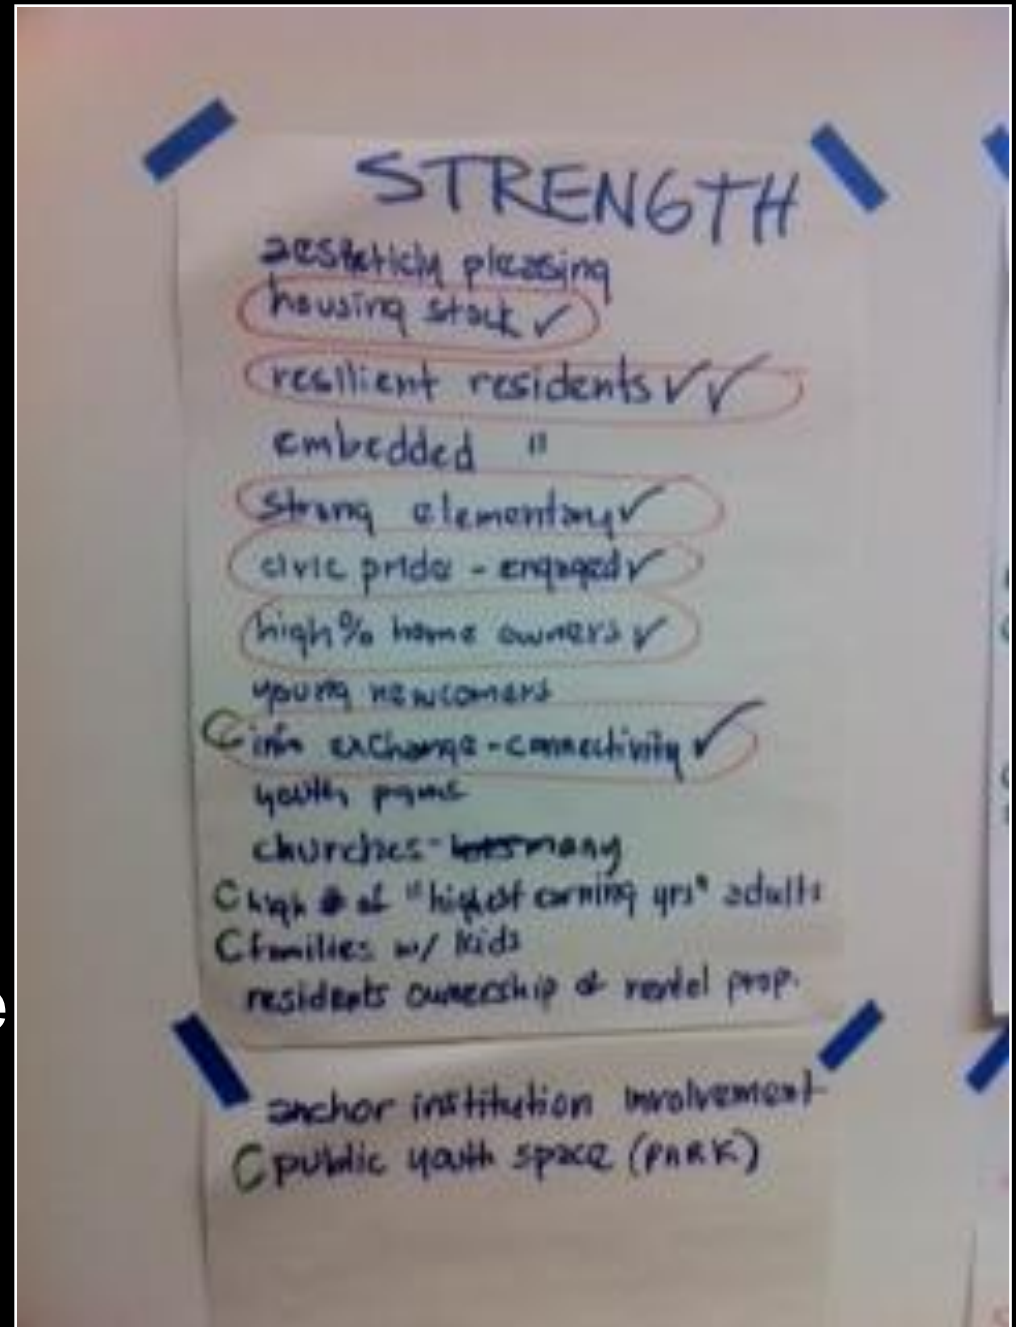 STRENGTH
aesteticly pleasing
housing stock ✓
resilient residents ✓✓
embedded "
strong elementary ✓
civic pride - engaged ✓
high % home owners ✓
young newcomers
C info exchange - connectivity ✓
youth pgms
churches - many
C high # of "highest earning yrs" adults
C families w/ kids
residents ownership of rental prop.
anchor institution involvement
C public youth space (PARK)
e